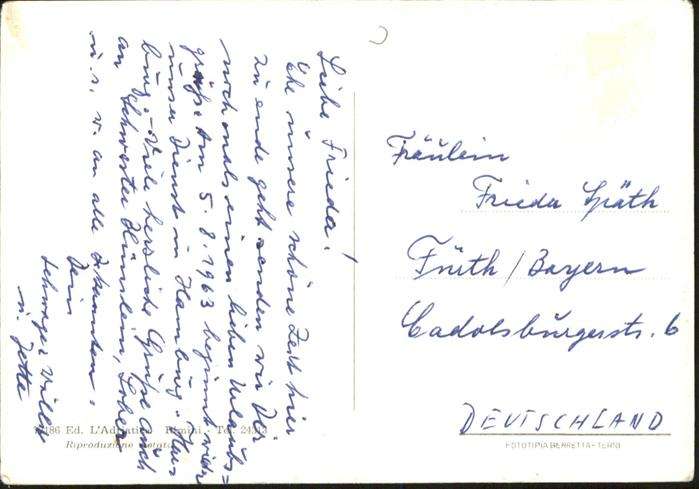 Liebe Frieda!
Ehe unsere schöne Zeit hier
zu ende geht senden wir Dir
nochmals einen lieben Urlaubs=
grüße Am 5.8.1963 beginnt wieder
unser Dienst in Hamburg-Har
burg.- Viele herzliche Grüße auch
an Schwester
u.s.w. an alle Bekannten.
Dein
Schwager Willy
u. Jette
Fräulein
Frieda Späth
Fürth/Bayern
Cadolsburgerstr. 6
DEUTSCHLAND
186 Ed. L'Adriatica Rimini - Tel. 24
Riproduzione vietata
FOTOTIPIA BERRETTA-TERNI